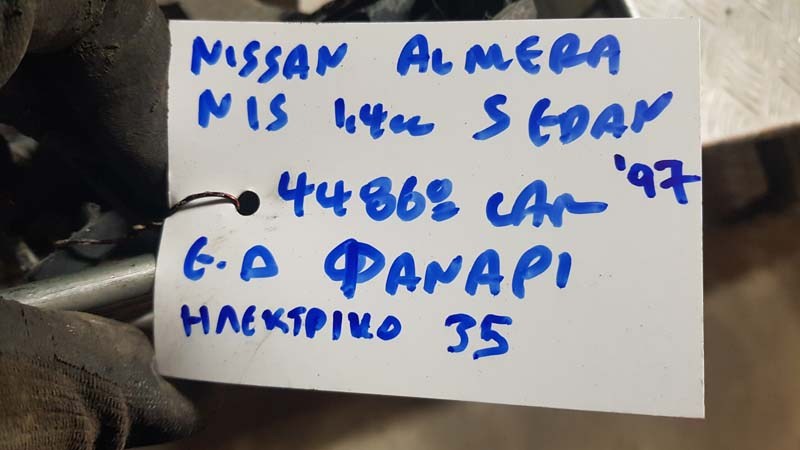 NISSAN ALMERA
N15 1.4cc SEDAN
'97
4486º CAR
Ε.Δ ΦΑΝΑΡΙ
ΗΛΕΚΤΡΙΚΟ 35